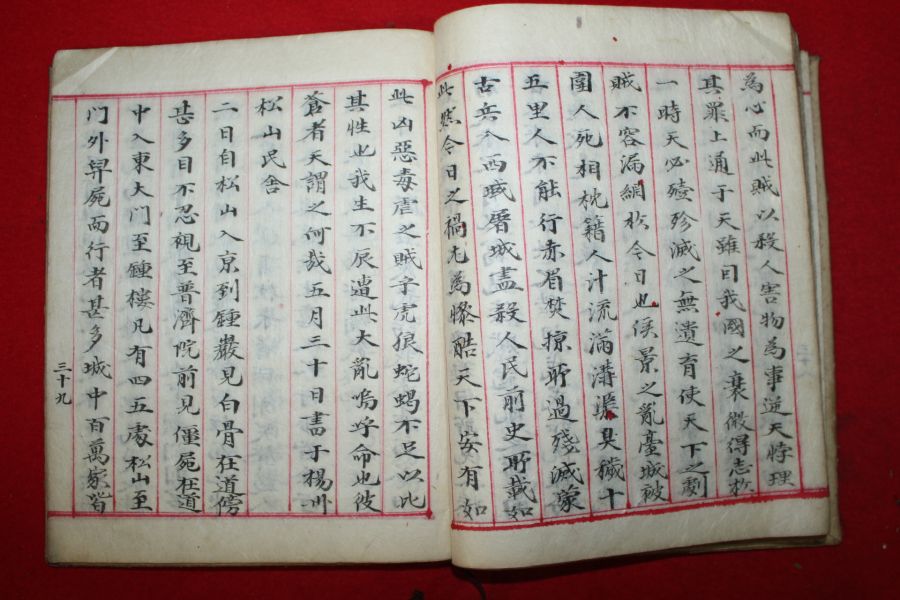 為心而此賊以殺人害物為事逆天悖理
其罪上通于天雖曰我國之衰微得志於
一時天必殪殄滅之無遺育使天下之劇
賊不容漏網於今日也侯景之亂臺城被
圍人死相枕籍人汁流滿溝渠臭穢十
五里人不能行赤眉焚掠所過殘滅蒙
古兵入西域屠城盡殺人民前史所載如
此然今日之禍尤為慘酷天下安有如
此凶惡毒虐之賊乎虎狼蛇蝎不足以比
其性也我生不辰遭此大亂嗚呼命也彼
蒼者天謂之何哉五月三十日書于楊州
松山民舍
二日自松山入京到鍾巖見白骨在道傍
甚多目不忍視至普濟院前見僵屍在道
中入東大门至鍾樓凡有四五處松山至
門外舁屍而行者甚多城中百萬家皆
三十九